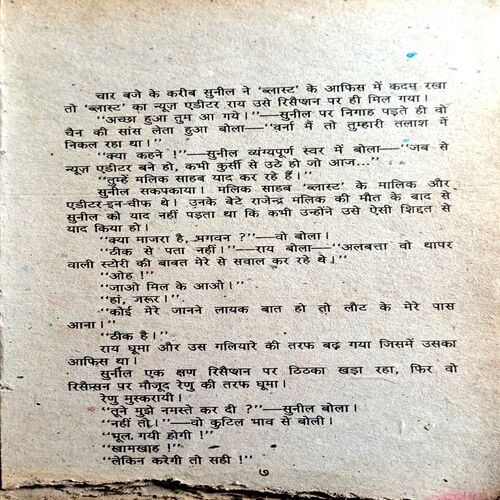 चार बजे के करीब सुनील ने 'ब्लास्ट' के आफिस में कदम रखा
तो 'ब्लास्ट' का न्यूज़ एडीटर राय उसे रिसैप्शन पर ही मिल गया।
"अच्छा हुआ तुम आ गये।"—सुनील पर निगाह पड़ते ही वो
चैन की सांस लेता हुआ बोला—"वर्ना मैं तो तुम्हारी तलाश में
निकल रहा था।"
"क्या कहने !"—सुनील व्यंग्यपूर्ण स्वर में बोला—"जब से
न्यूज़ एडीटर बने हो, कभी कुर्सी से उठे हो जो आज..."
"तुम्हें मलिक साहब याद कर रहे हैं।"
सुनील सकपकाया। मलिक साहब 'ब्लास्ट' के मालिक और
एडीटर-इन-चीफ थे। उनके बेटे राजेन्द्र मलिक की मौत के बाद से
सुनील को याद नहीं पड़ता था कि कभी उन्होंने उसे ऐसी शिद्दत से
याद किया हो।
"क्या माजरा है, भगवन ?"—वो बोला।
"ठीक से पता नहीं।"—राय बोला—"अलबत्ता वो थापर
वाली स्टोरी की बाबत मेरे से सवाल कर रहे थे।"
"ओह !"
"जाओ मिल के आओ।"
"हां, जरूर।"
"कोई मेरे जानने लायक बात हो तो लौट के मेरे पास
आना।"
"ठीक है।"
राय घूमा और उस गलियारे की तरफ बढ़ गया जिसमें उसका
आफिस था।
सुनील एक क्षण रिसैप्शन पर ठिठका खड़ा रहा, फिर वो
रिसैप्सन पर मौजूद रेणु की तरफ घूमा।
रेणु मुस्करायी।
"तूने मुझे नमस्ते कर दी ?"—सुनील बोला।
"नहीं तो।"—वो कुटिल भाव से बोली।
"भूल गयी होगी !"
"खामखाह !"
"लेकिन करेगी तो सही !"
७